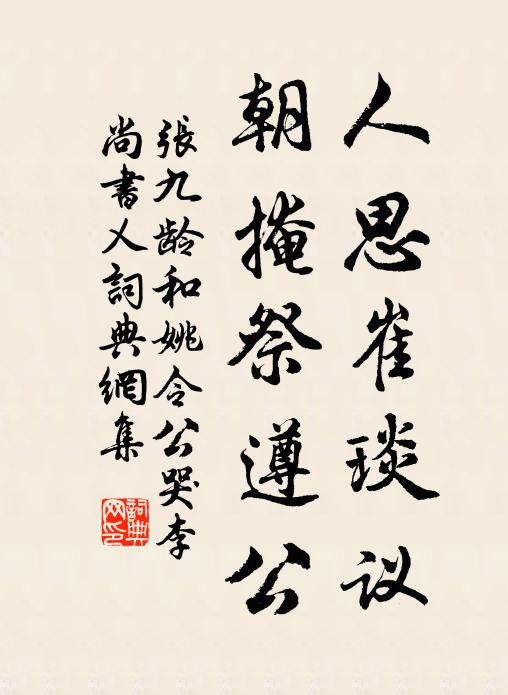 人思崔琰议
朝掩祭遵公
張九龄和姚令公哭李
尚書乂詞典網集
詞典
网印